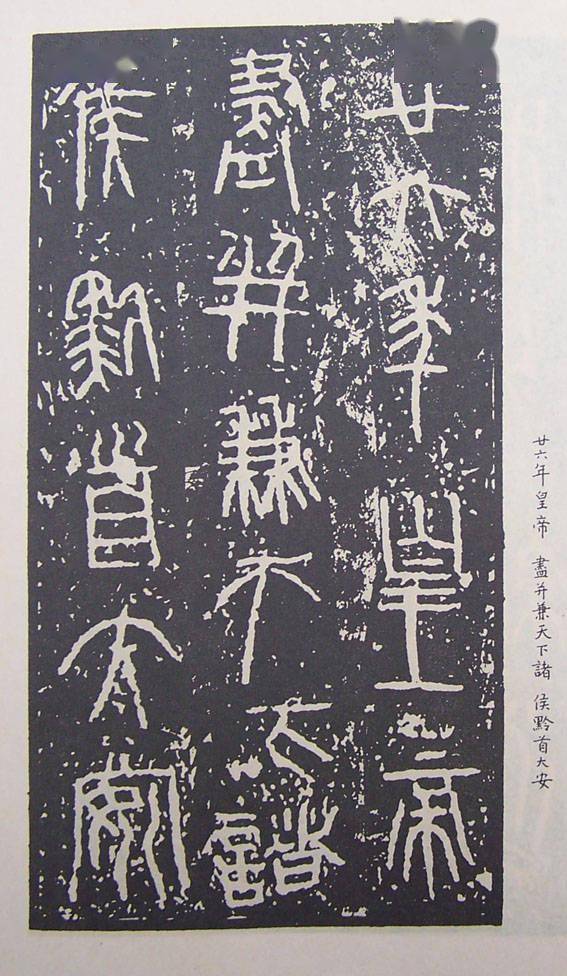 廿六年皇帝
盡并兼天下諸
侯黔首大安
廿六年皇帝　盡并兼天下諸　侯黔首大安